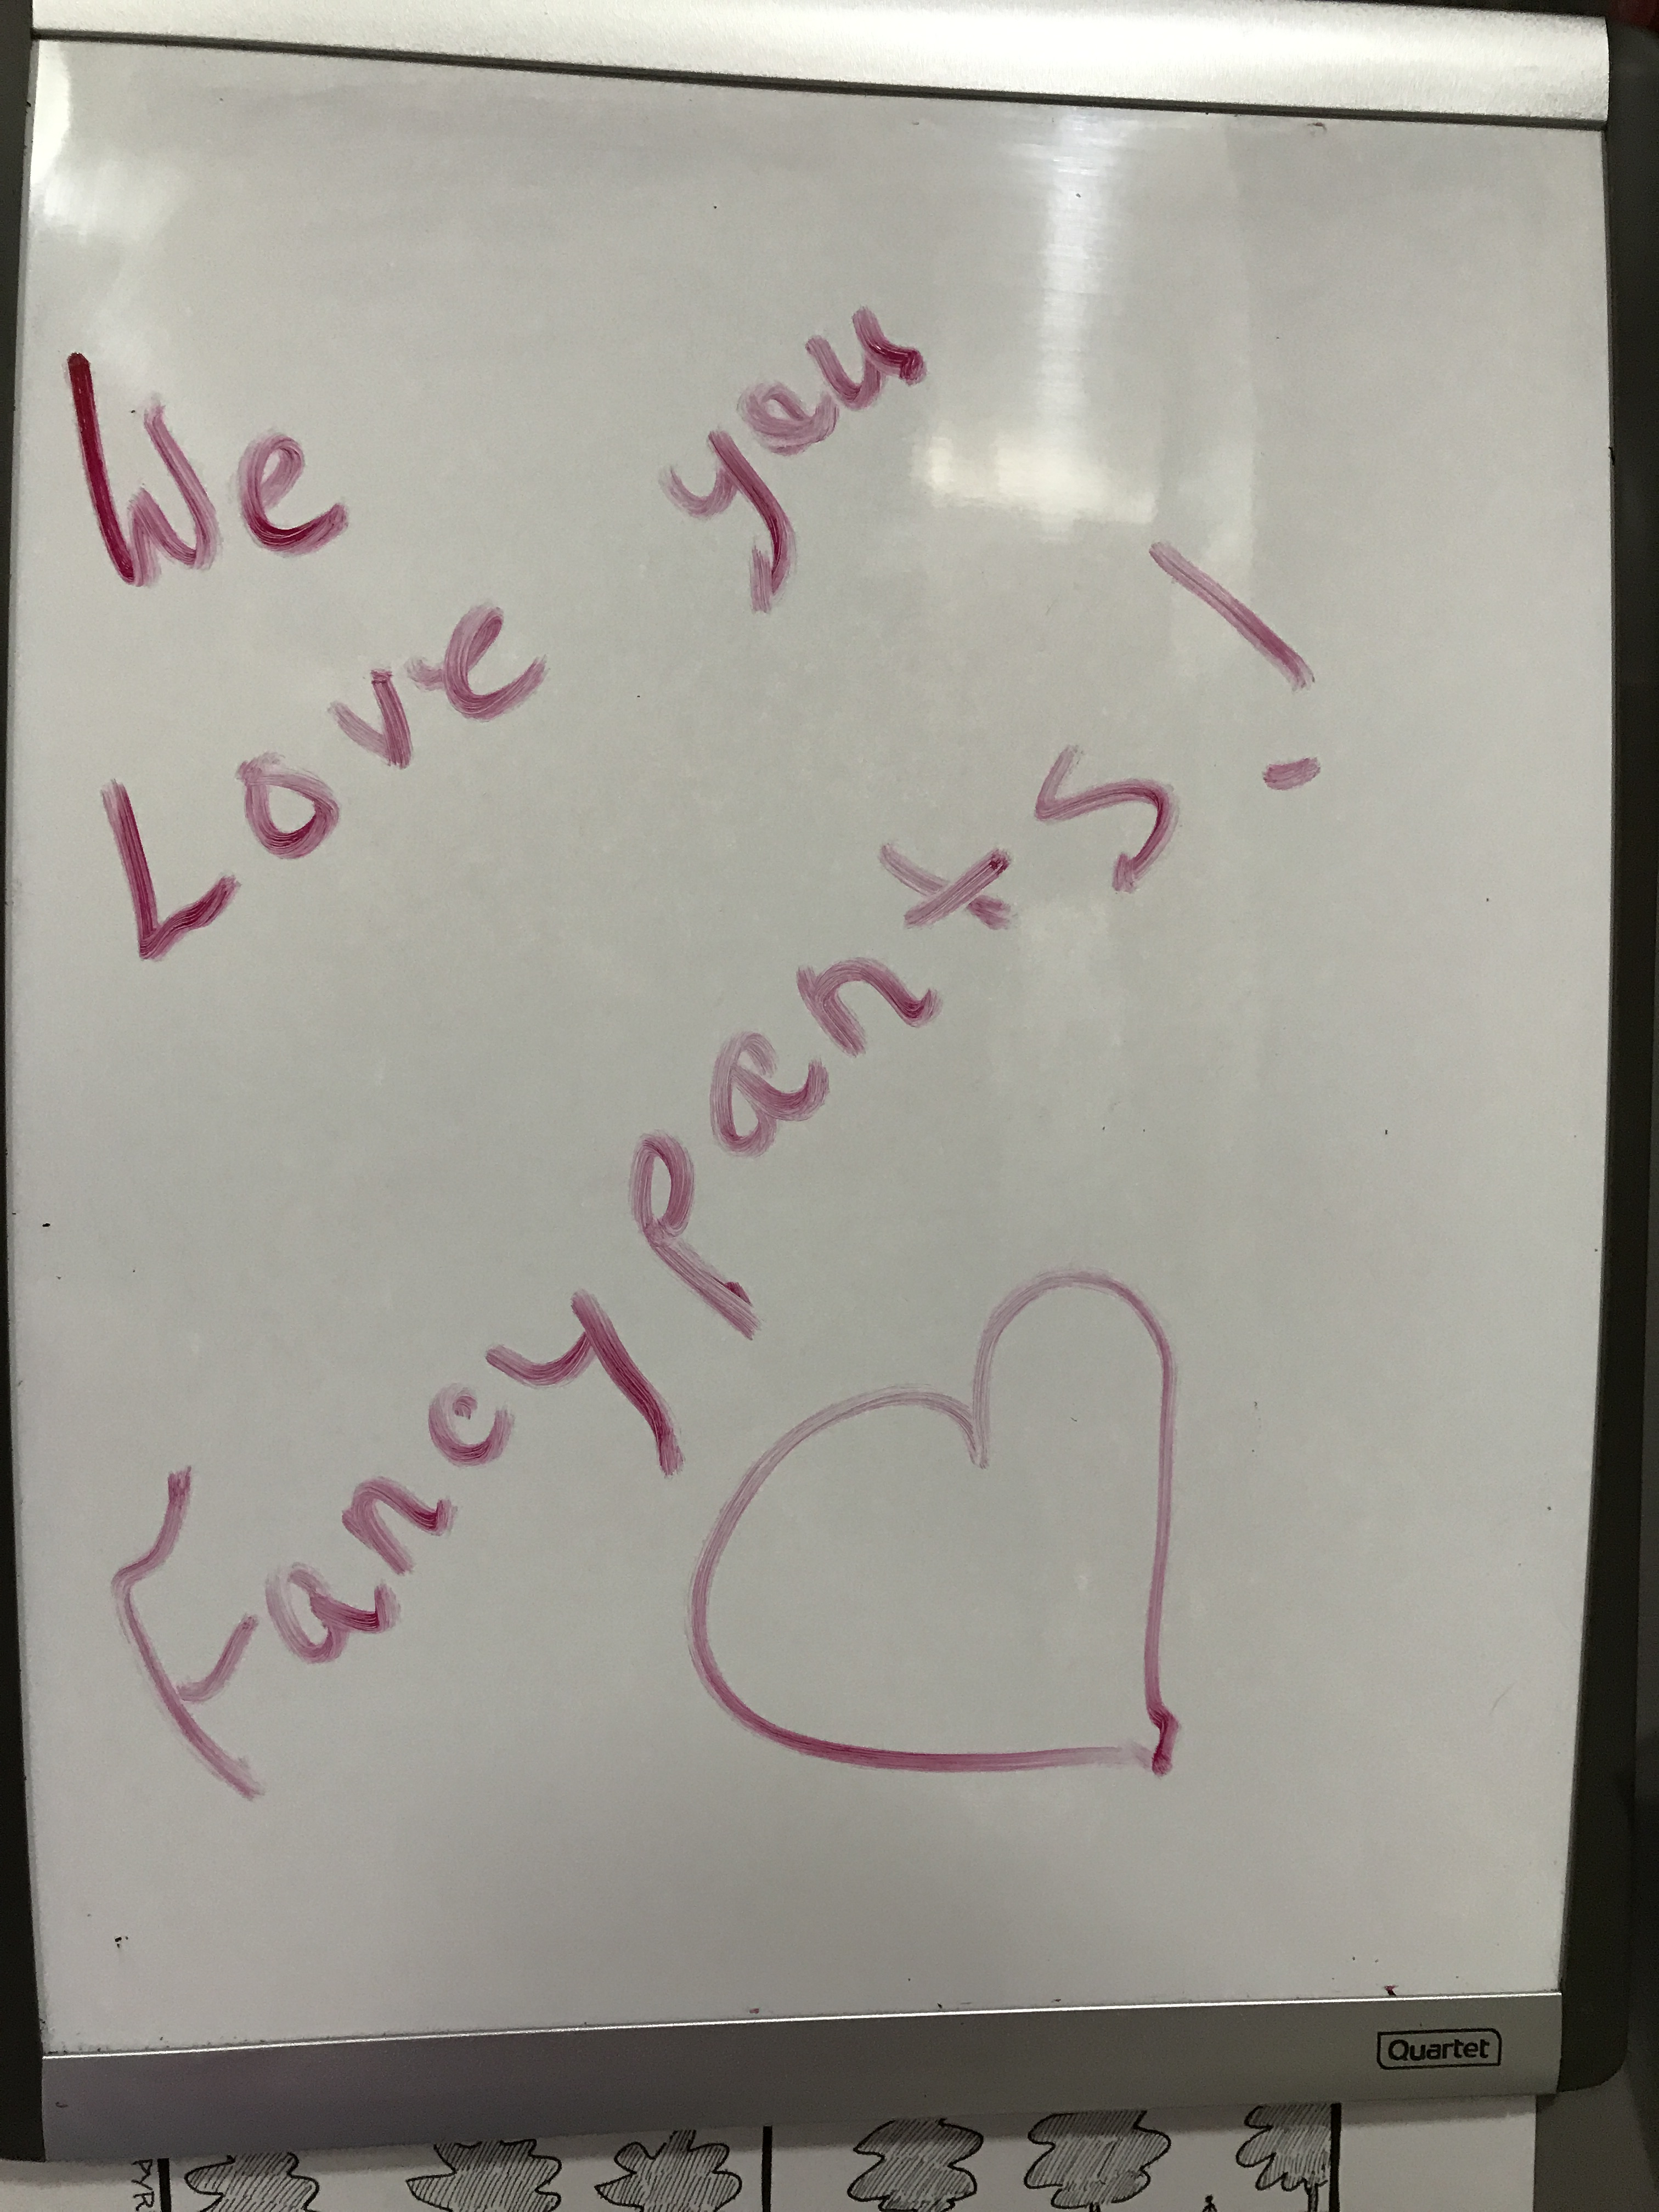 We
Love you
Fancypants!
Quartet
PYR